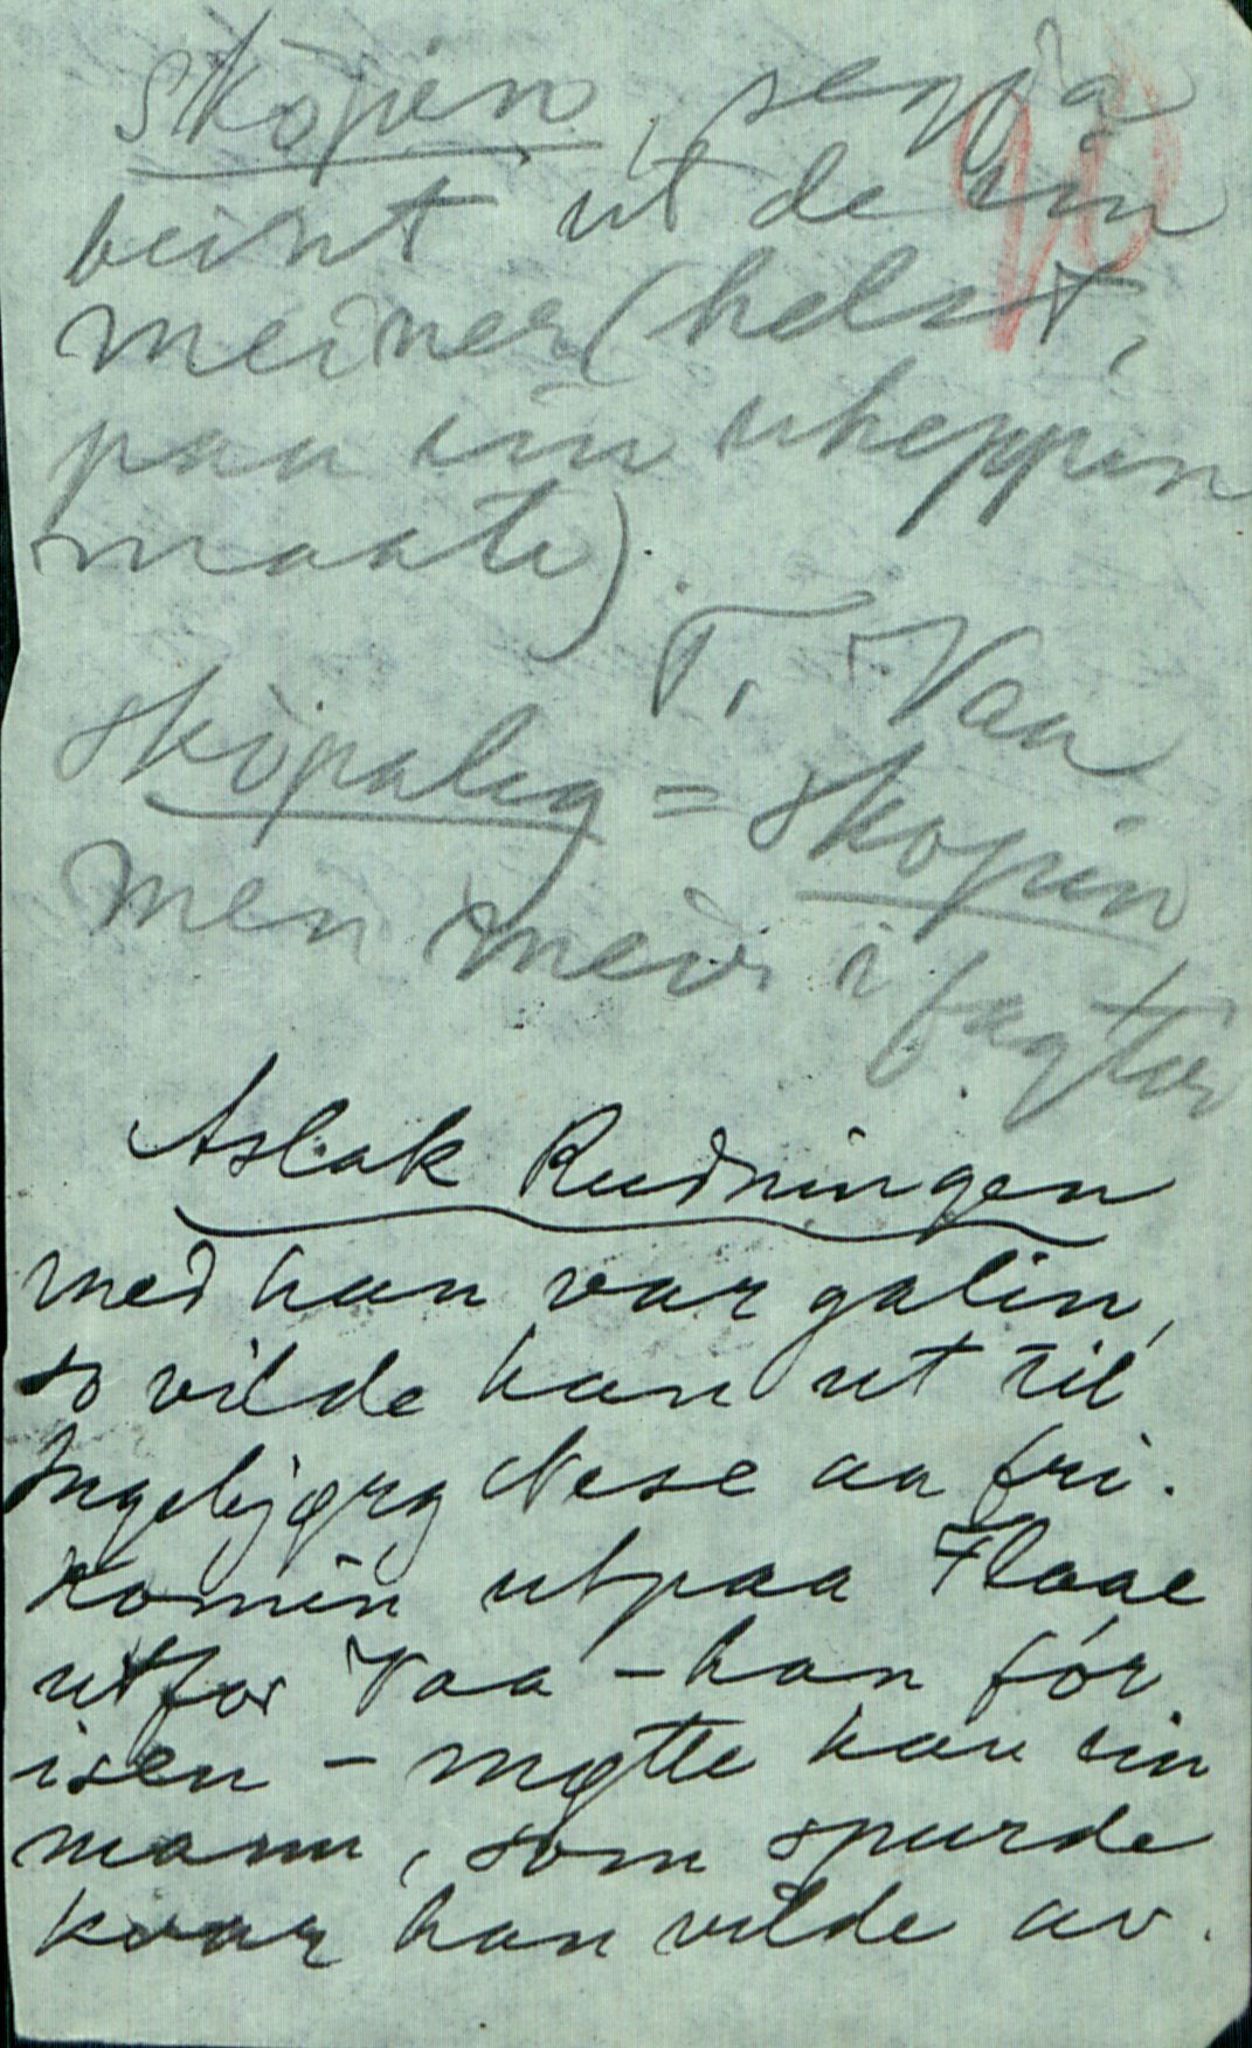 skòpin, segja
beint ut de ein
meiner (helst,
paa ein uheppin
maate).
T. Vaa
skòpaleg = skopin
men meir i fagter
Aslak Rudningen
med han var galin,
so vilde han ut til
Ingebjørg Nese aa fri.
Komin utpaa Flaae
utfor Vaa – han fór
isen – møtte han ein
mann, som spurde
kvar han vilde av.